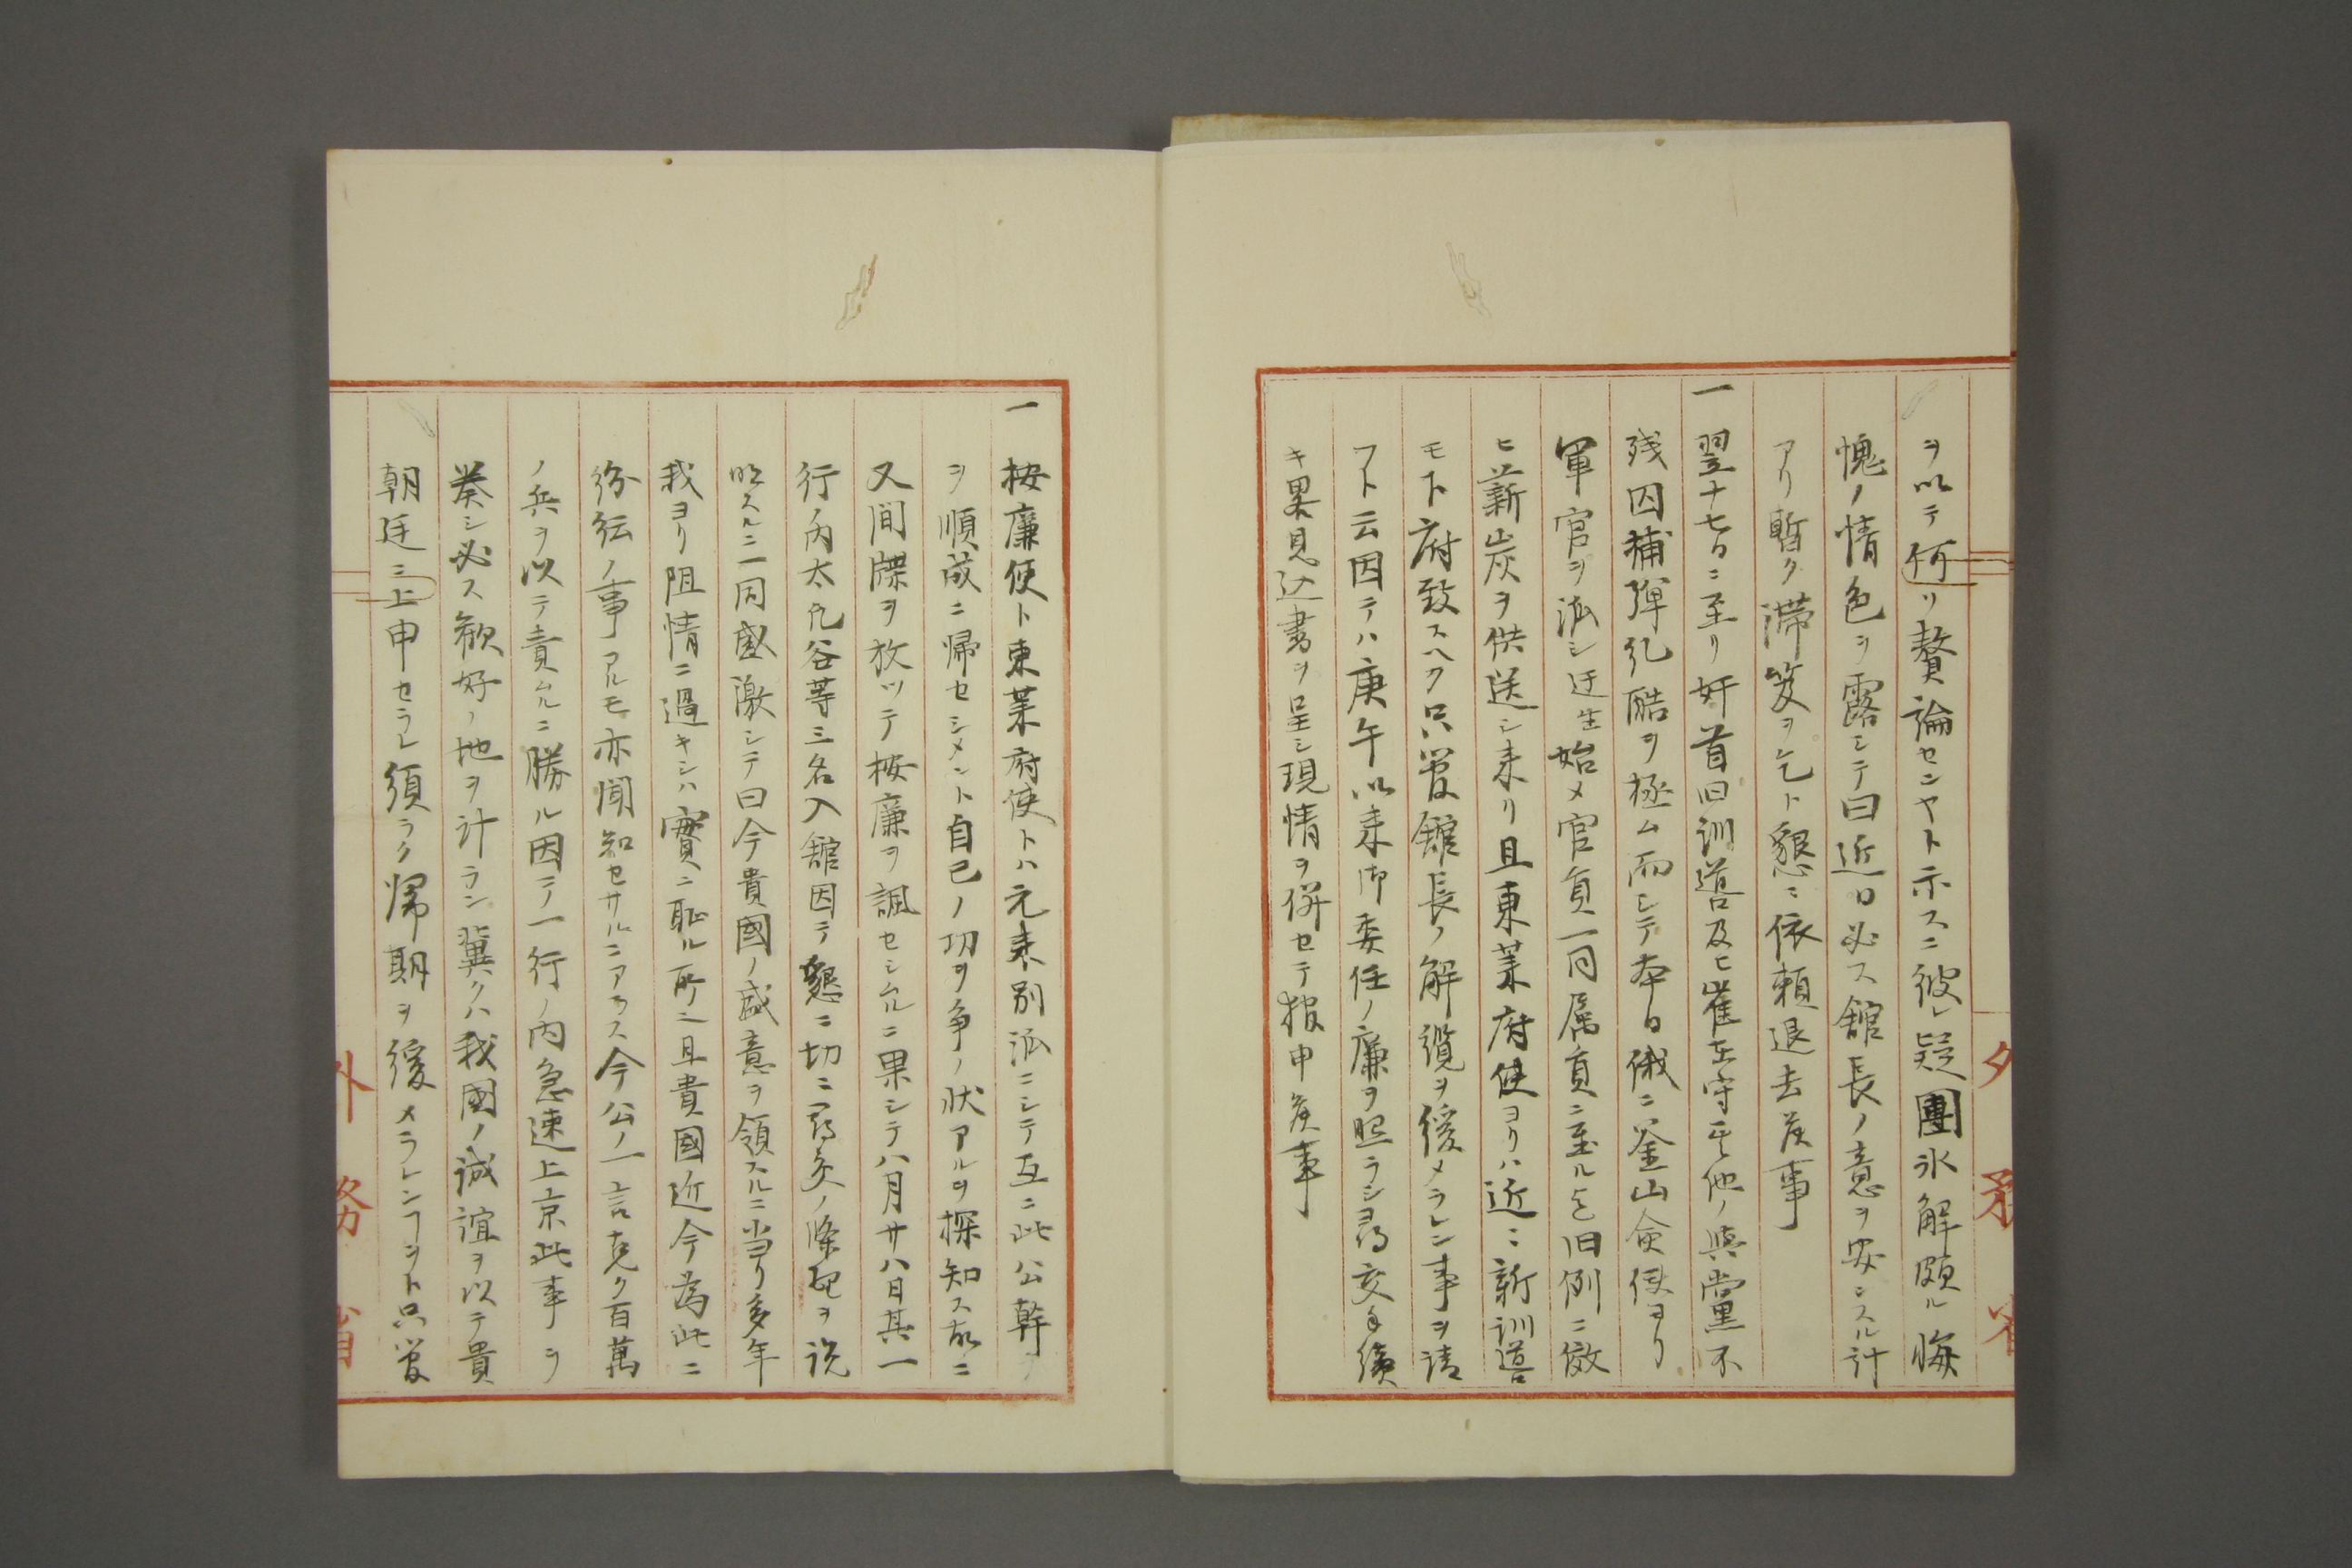 ヲ以テ何ソ贅論センヤト示スニ彼レ疑團氷解頗ル悔
愧ノ情色ヲ露シテ曰近日必ス舘長ノ意ヲ安ンスル計
アリ暫ク滞筊ヲ乞ト懇ニ依頼退去候事
一翌十七日ニ至リ奸首旧訓噵及ヒ崔在守其他ノ與黨不
残囚捕弾糺酷ヲ極ム而シテ本日俄ニ釜山僉使ヨリ
軍官ヲ派シ迂生始メ官員一同属員ニ至ル迄旧例ニ倣
ヒ薪炭ヲ供送シ来リ且東萊府使ヨリハ近ニ新訓噵
モ下府致スヘク只管舘長ノ解纜ヲ緩メラレン事ヲ請
フト云因テハ庚午以来御委任ノ廉ヲ照ラシ尋交手續
キ果見込書ヲ呈シ現情ヲ併セテ報申候事
一按廉使ト東萊府使トハ元来別派ニシテ互ニ此公幹ヲ
ヲ順成ニ帰セシメント自己ノ功ヲ争ノ状アルヲ探知ス故ニ
又間牒ヲ放ツテ按廉ヲ諷セシムルニ果シテ八月廿八日其一
行ノ内太九谷等三名入舘因テ懇ニ切ニ尋交ノ條理ヲ説
明スルニ一同感激シテ曰今貴國ノ盛意ヲ領スルニ当リ多年
我ヨリ阻情ニ過キシハ實ニ恥ル所ニ且貴國近今為此ニ
紛紜ノ事アルモ亦聞知セサルニアラス今公ノ一言克ク百萬
ノ兵ヲ以テ責ムルニ勝ル因テ一行ノ内急速上京此事ヲ
奏シ必ス歓好ノ地ヲ計ラン冀クハ我國ノ誠誼ヲ以テ貴
朝廷ニ上申セラレ須ラク帰期ヲ緩メラレンヿヲト只管
外務省